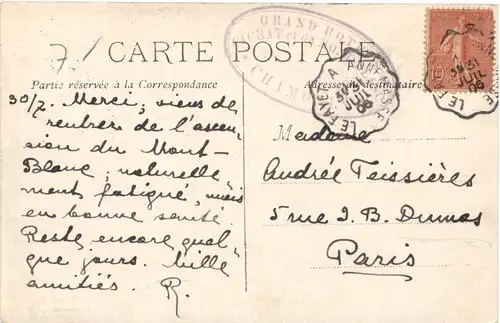 7
CARTE POSTALE
GRAND HOTEL
CHAM
Partie réservée à la Correspondance
Adresse du destinataire
LE FAYET A ANNEMASSE
31
JUIL
06
LE FAY
31
JUIL
06
10c
30/7. Merci, viens de
rentrer de l'ascen
sion du Mont-
Blanc, naturelle
ment fatigué, mais
en bonne santé.
Reste encore quel-
que jours. Mille
amitiés. R.
Madame
Andrée Teissières
5 rue J. B. Dumas
Paris